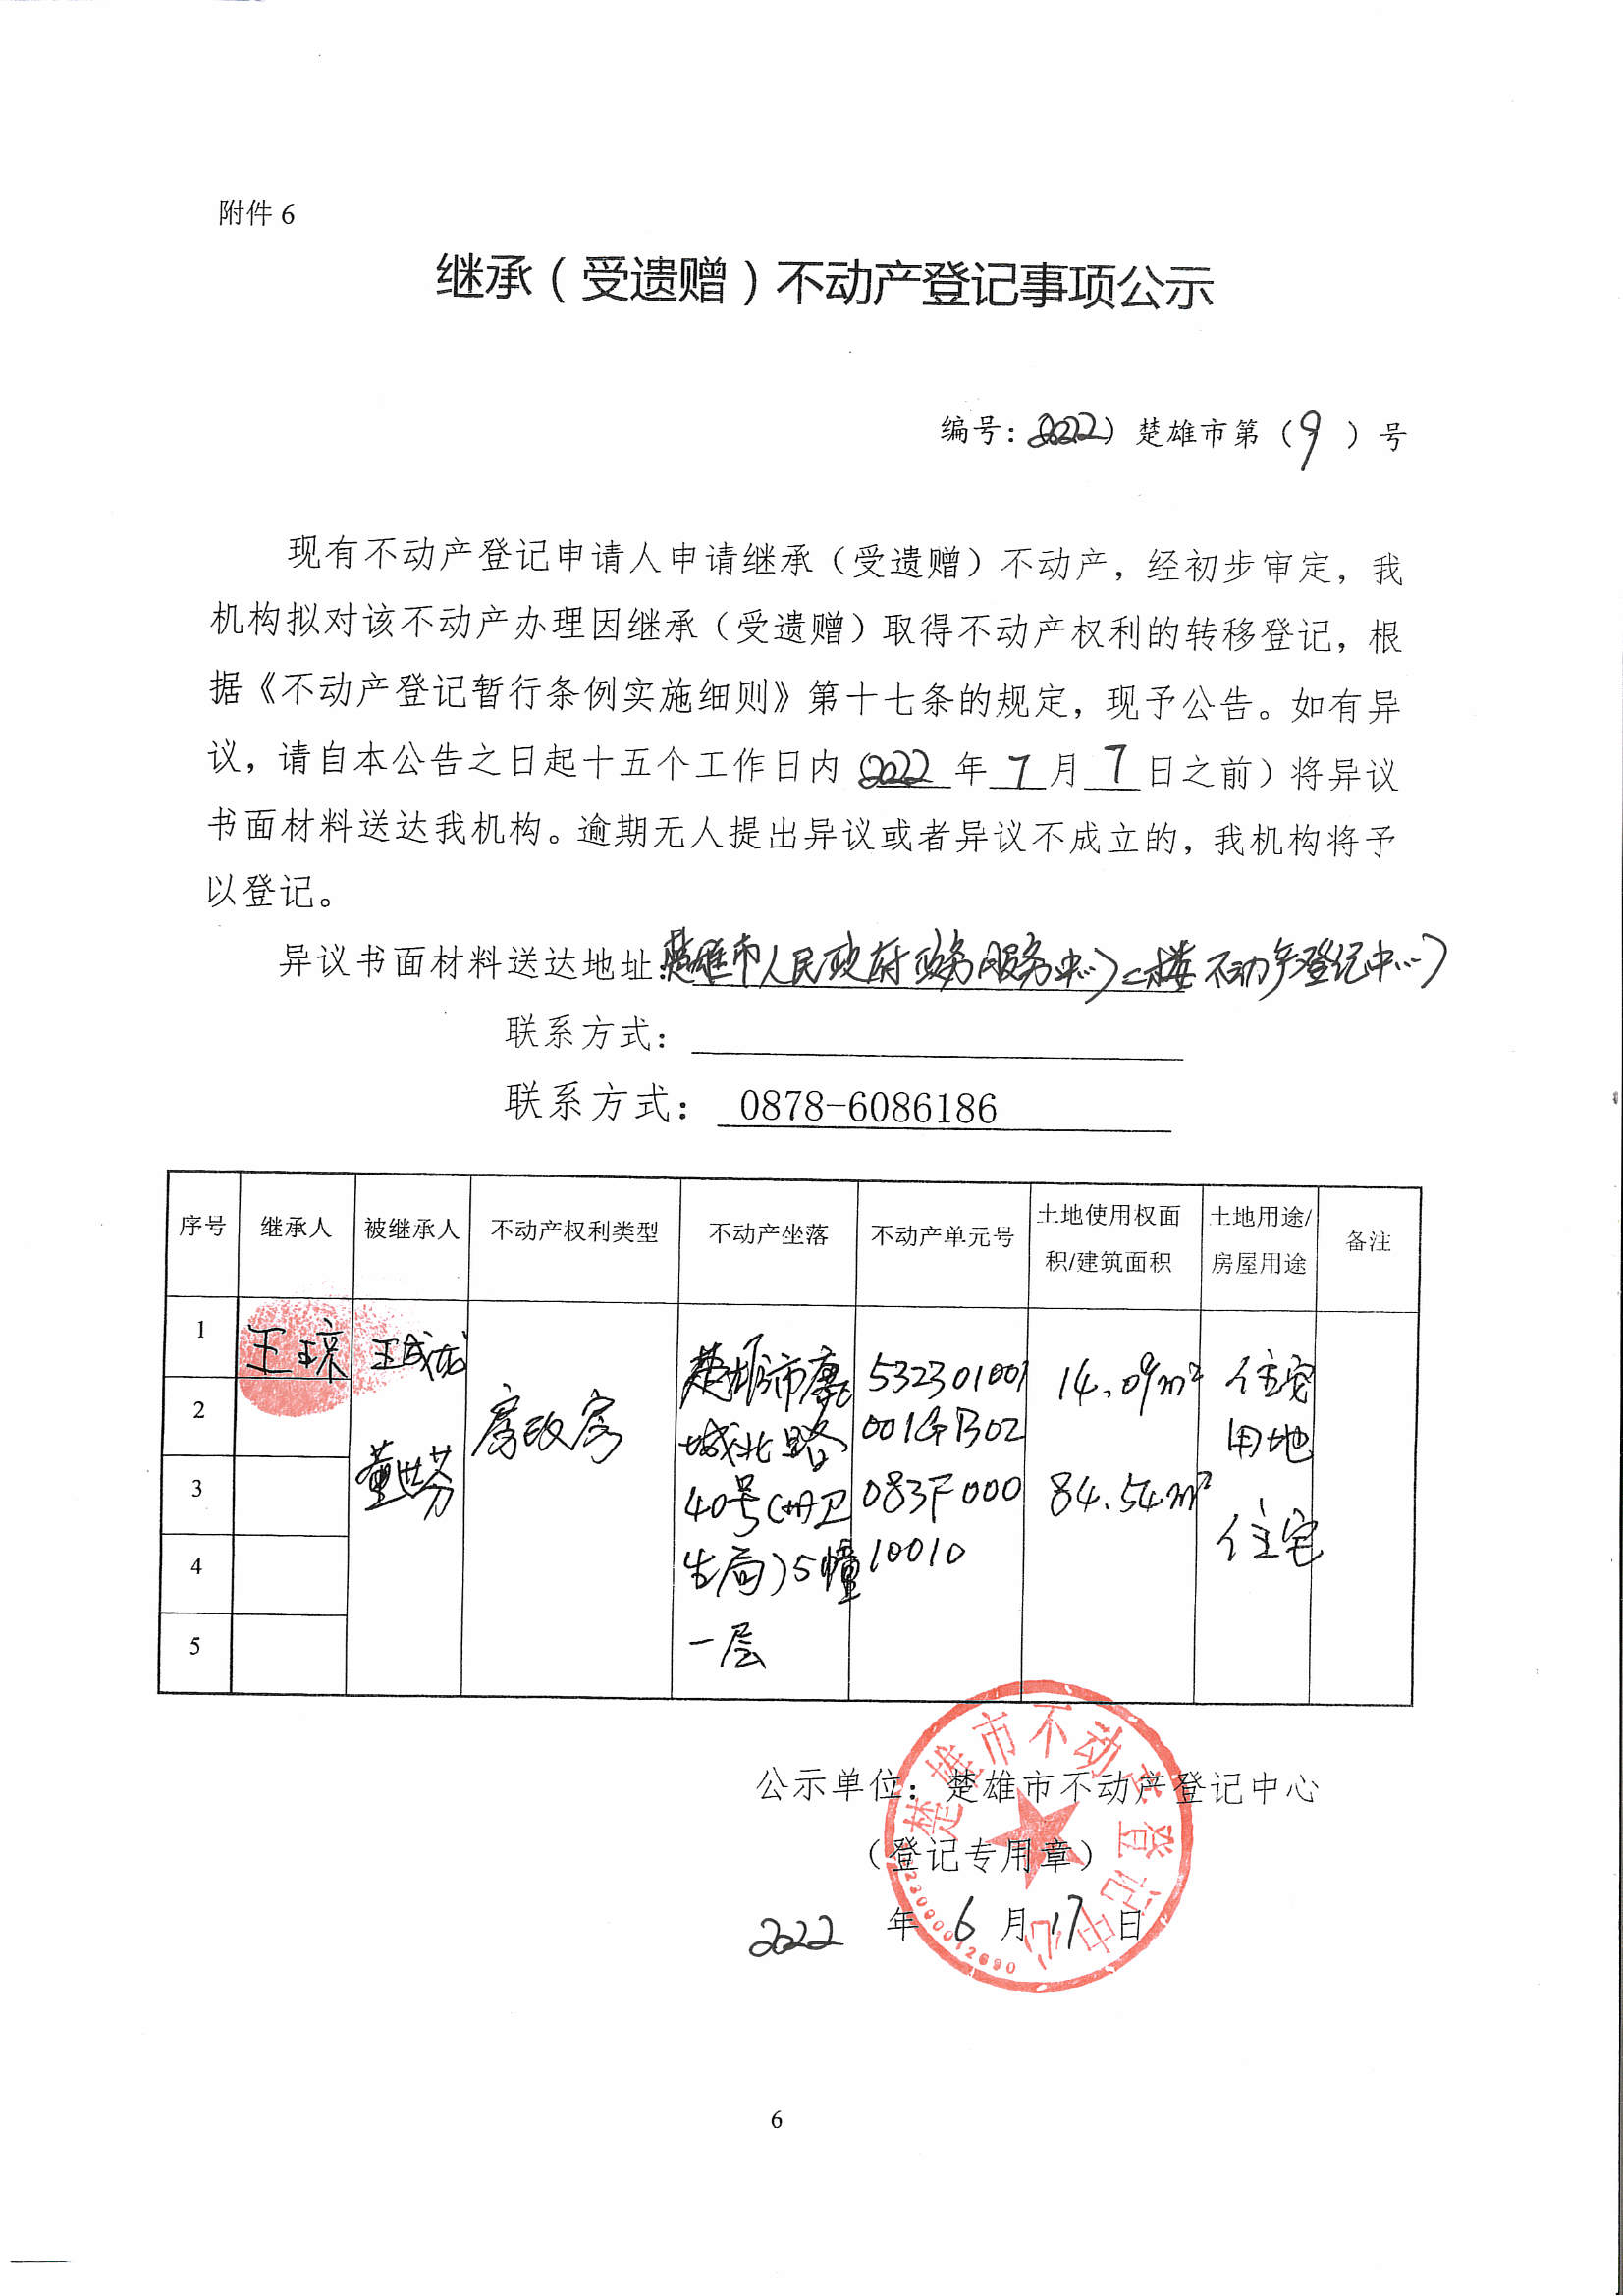 附件 6
继承（受遗赠）不动产登记事项公示
编号：2022）楚雄市第（9）号
现有不动产登记申请人申请继承（受遗赠）不动产，经初步审定，我
机构拟对该不动产办理因继承（受遗赠）取得不动产权利的转移登记，根
据《不动产登记暂行条例实施细则》第十七条的规定，现予公告。如有异
议，请自本公告之日起十五个工作日内（2022 年 7 月 7 日之前）将异议
书面材料送达我机构。逾期无人提出异议或者异议不成立的，我机构将予
以登记。
异议书面材料送达地址：楚雄市人民政府政务服务中心二楼不动产登记中心
联系方式：
联系方式： 0878-6086186
序号 继承人 被继承人 不动产权利类型 不动产坐落 不动产单元号 土地使用权面积/建筑面积 土地用途/房屋用途 备注
1
2
3
4
5
王琼
王成龙
董世芬
房改房
楚雄市鹿
城北路
40号(州卫
生局)5幢
一层
532301001
001GB02
083F000
10010
14.09m²
84.54m²
住宅
用地
住宅
公示单位：楚雄市不动产登记中心
（登记专用章）
2022 年 6 月 17 日
楚雄市不动产登记中心
6